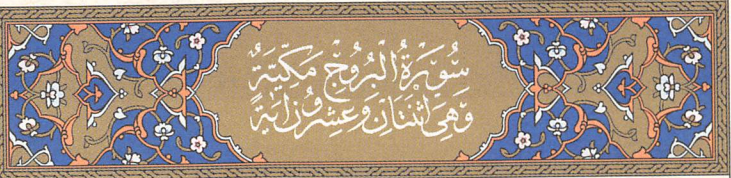 سُوۡرَةُ الۡبُرُوۡجِ مَكِّيَّةٌ
وَّهِىَ اثۡنَتَانِ وَعِشۡرُوۡنَ اٰيَةً